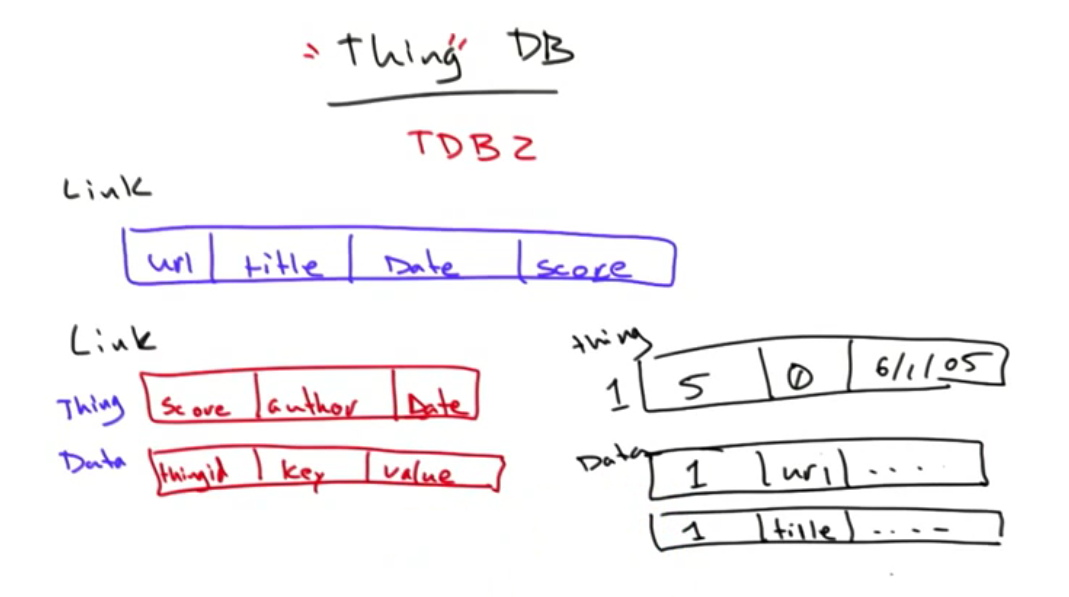 "Thing" DB
TDB2
Link
url title Date score
Link
Thing score author Date
Data thingid key value
thing
1 5 0 6/1/05
Data 1 url ....
1 title ....